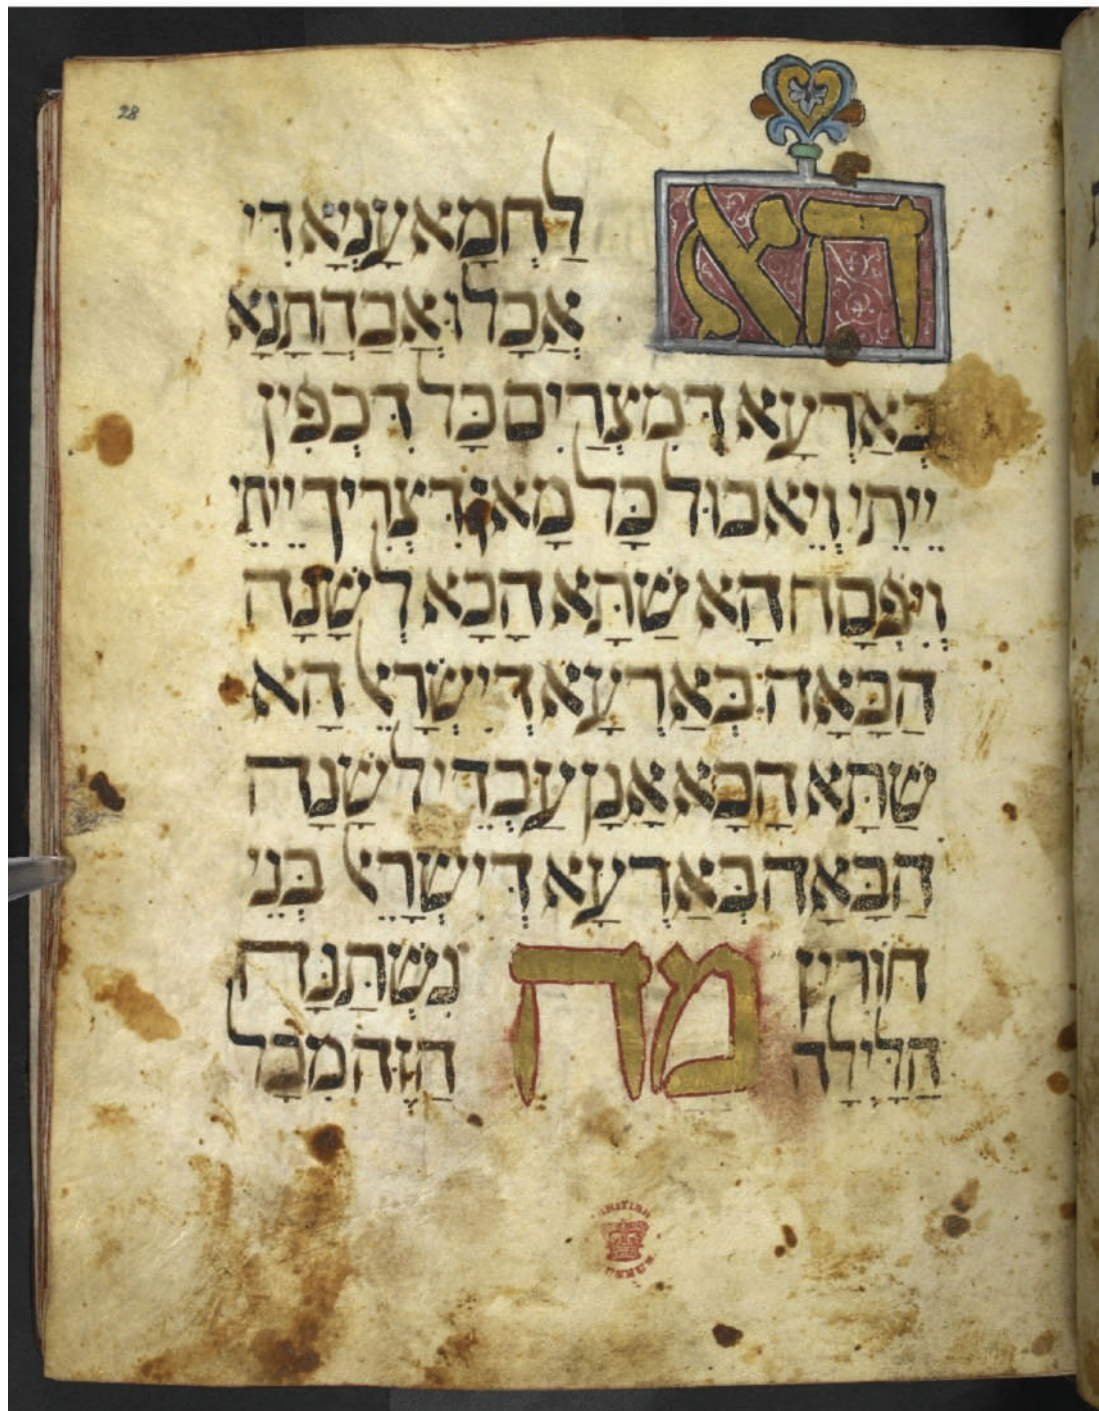 28
הא לַחְמָא עַנְיָא דִּי
אֲכָלוּ אֲבָהֲתָנָא
בְּאַרְעָא דְּמִצְרַיִם כָּל דִּכְפִין
יֵיתֵי וְיֵאכוּל כָּל מָאן דִּצְרִיךְ יֵיתֵי
וְיִפְסַח הָא שַׁתָּא הָכָא לְשָׁנָה
הַבָּאָה בְּאַרְעָא דְיִשְׂרָאֵל הָא
שַׁתָּא הָכָא אֲנָן עַבְדֵי לְשָׁנָה
הַבָּאָה בְּאַרְעָא דְּיִשְׂרָאֵל בְּנֵי
חוֹרִין מה נִשְׁתַּנָּה
הַלַּיְלָה הַזֶּה מִכָּל
BRITISH
MUSEUM